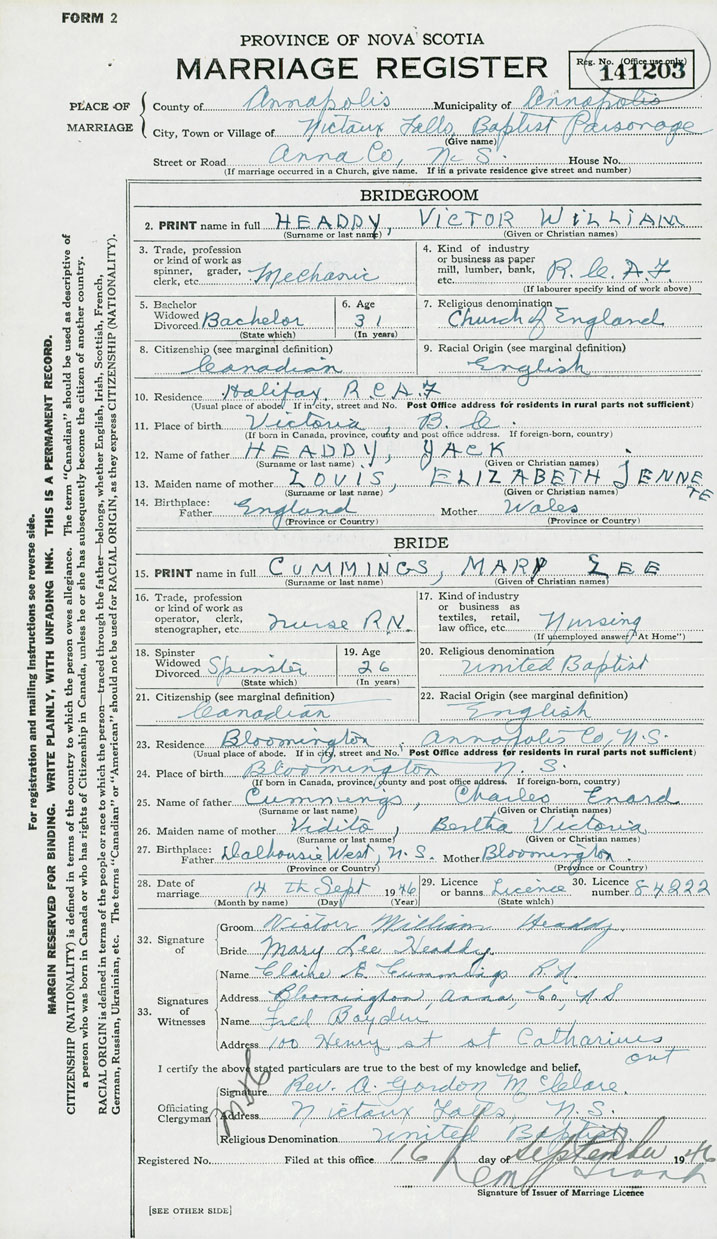 FORM 2
PROVINCE OF NOVA SCOTIA
MARRIAGE REGISTER
Reg. No. (Office use only)
141203
PLACE OF MARRIAGE
County of Annapolis Municipality of Annapolis
City, Town or Village of Nictaux Falls, Baptist Parsonage
(Give name)
Street or Road Anna Co, N. S. House No.
(If marriage occurred in a Church, give name. If in a private residence give street and number)
BRIDEGROOM
2. PRINT name in full HEADDY, VICTOR WILLIAM
(Surname or last name) (Given or Christian names)
3. Trade, profession or kind of work as spinner, grader, clerk, etc. Mechanic
4. Kind of industry or business as paper mill, lumber, bank, etc. R.C.A.F.
(If labourer specify kind of work above)
5. Bachelor Widowed Divorced Bachelor
(State which)
6. Age 31
(In years)
7. Religious denomination Church of England
8. Citizenship (see marginal definition) Canadian
9. Racial Origin (see marginal definition) English
10. Residence Halifax R C A F
(Usual place of abode. If in city, street and No. Post Office address for residents in rural parts not sufficient)
11. Place of birth Victoria, B. C.
(If born in Canada, province, county and post office address. If foreign-born, country)
12. Name of father HEADDY, JACK
(Surname or last name) (Given or Christian names)
13. Maiden name of mother LOUIS, ELIZABETH JENNETTE
(Surname or last name) (Given or Christian names)
14. Birthplace: Father England Mother Wales
(Province or Country) (Province or Country)
BRIDE
15. PRINT name in full CUMMINGS, MARY LEE
(Surname or last name) (Given or Christian names)
16. Trade, profession or kind of work as operator, clerk, stenographer, etc. nurse R.N.
17. Kind of industry or business as textiles, retail, law office, etc. Nursing
(If unemployed answer "At Home")
18. Spinster Widowed Divorced Spinster
(State which)
19. Age 26
(In years)
20. Religious denomination United Baptist
21. Citizenship (see marginal definition) Canadian
22. Racial Origin (see marginal definition) English
23. Residence Bloomington, Annapolis Co, N.S.
(Usual place of abode. If in city, street and No. Post Office address for residents in rural parts not sufficient)
24. Place of birth Bloomington N. S.
(If born in Canada, province, county and post office address. If foreign-born, country)
25. Name of father Cummings, Charles Enard
(Surname or last name) (Given or Christian names)
26. Maiden name of mother Vidito, Bertha Victoria
(Surname or last name) (Given or Christian names)
27. Birthplace: Father Dalhousie West, N. S. Mother Bloomington.
(Province or Country) (Province or Country)
28. Date of marriage 14 th Sept 1946
(Month by name) (Day) (Year)
29. Licence or banns Licence
(State which)
30. Licence number 84222
32. Signature of
Groom Victor William Headdy
Bride Mary Lee Headdy.
33. Signatures of Witnesses
Name Claire E. Cummings R.N.
Address Bloomington, Anna, Co, N.S
Name Fred Boyden
Address 100 Henry st st Catharines ont
I certify the above stated particulars are true to the best of my knowledge and belief.
Officiating Clergyman
Signature Rev. A. Gordon McClare.
Address Nictaux Falls, N. S.
Religious Denomination United Baptist
Registered No. Filed at this office 16 day of September 1946
Signature of Issuer of Marriage Licence
[SEE OTHER SIDE]
For registration and mailing instructions see reverse side.
MARGIN RESERVED FOR BINDING. WRITE PLAINLY, WITH UNFADING INK. THIS IS A PERMANENT RECORD.
CITIZENSHIP (NATIONALITY) is defined in terms of the country to which the person owes allegiance. The term "Canadian" should be used as descriptive of
a person who was born in Canada or who has rights of Citizenship in Canada, unless he or she has subsequently become the citizen of another country.
RACIAL ORIGIN is defined in terms of the people or race to which the person—traced through the father—belongs, whether English, Irish, Scottish, French,
German, Russian, Ukrainian, etc. The terms "Canadian" or "American" should not be used for RACIAL ORIGIN, as they express CITIZENSHIP (NATIONALITY).